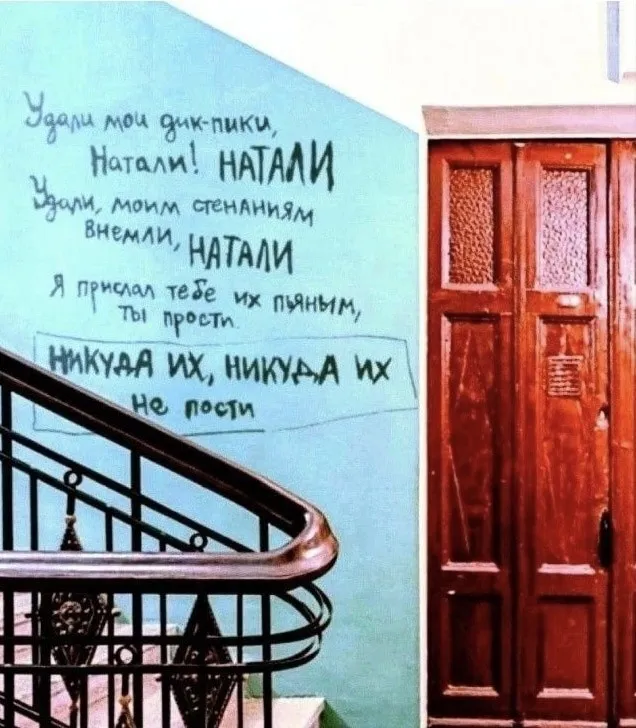 Удали мои дик-пики,
Натали! НАТАЛИ
Удали, моим стенаниям
внемли, НАТАЛИ
Я прислал тебе их пьяным,
ты прости
НИКУДА ИХ, НИКУДА ИХ
не пости